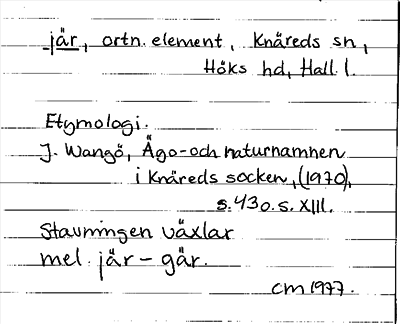 jär, ortn. element, Knäreds sn,
Höks hd, Hall. l.
Etymologi.
J. Wangö, Ägo- och naturnamnen
i Knäreds socken, (1970),
s. 43 o. s. XIII.
Stavningen växlar
mel. jär - gär.
CM 1977.